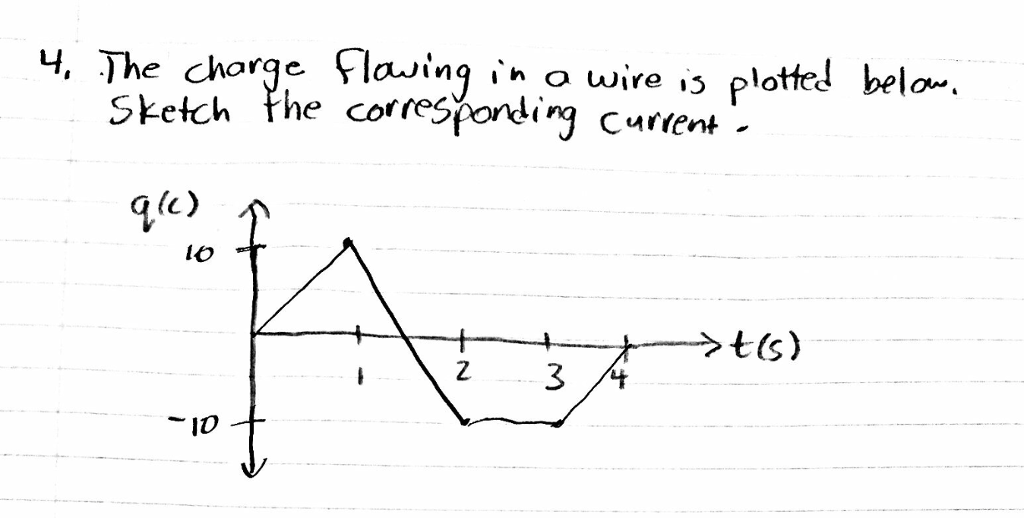 4. The charge flowing in a wire is plotted below.
Sketch the corresponding current.
q(c)
10
t(s)
1 2 3 4
-10